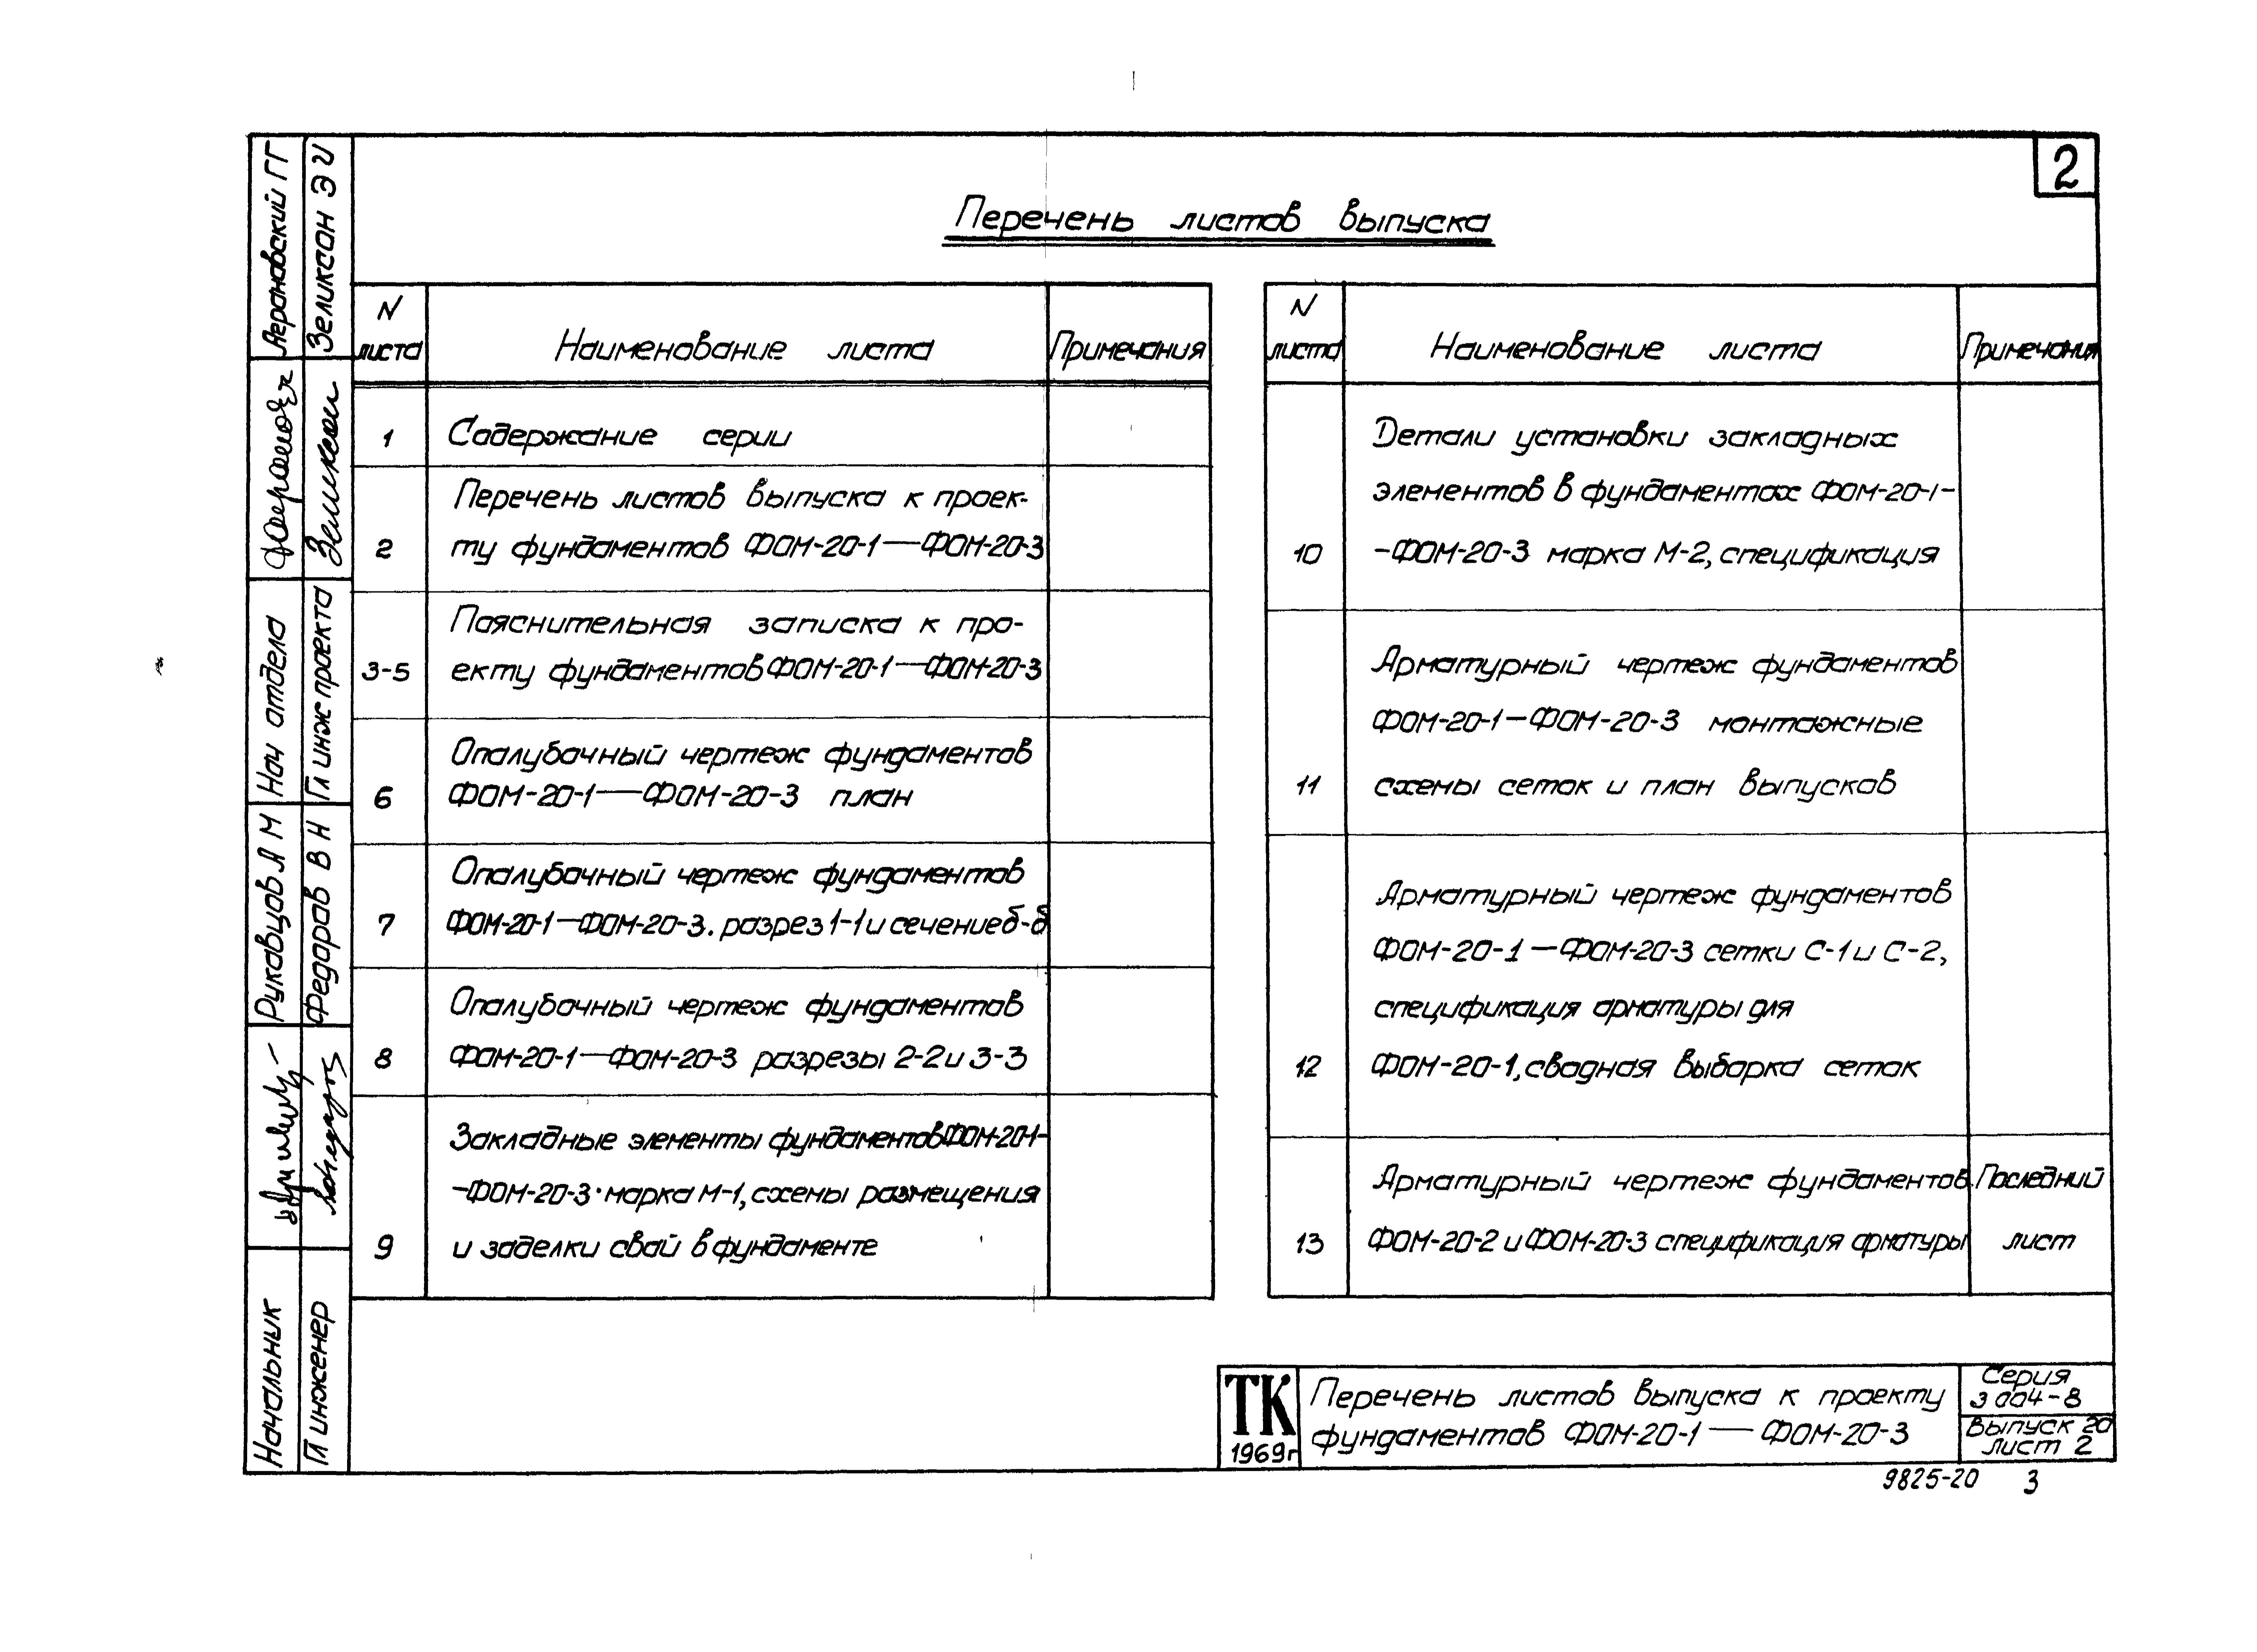 2
Перечень листов выпуска
N
листа
Наименование листа
Примечания
1
Содержание серии
2
Перечень листов выпуска к проек-
ту фундаментов ФОМ-20-1—ФОМ-20-3
3-5
Пояснительная записка к про-
екту фундаментов ФОМ-20-1—ФОМ-20-3
6
Опалубочный чертеж фундаментов
ФОМ-20-1—ФОМ-20-3 план
7
Опалубочный чертеж фундаментов
ФОМ-20-1—ФОМ-20-3. разрез 1-1 и сечение б-б
8
Опалубочный чертеж фундаментов
ФОМ-20-1—ФОМ-20-3 разрезы 2-2 и 3-3
9
Закладные элементы фундаментов ФОМ-20-1-
-ФОМ-20-3·марка М-1, схемы размещения
и заделки свай в фундаменте
N
листа
Наименование листа
Примечания
10
Детали установки закладных
элементов в фундаментах ФОМ-20-1-
-ФОМ-20-3 марка М-2, спецификация
11
Арматурный чертеж фундаментов
ФОМ-20-1—ФОМ-20-3 монтажные
схемы сеток и план выпусков
12
Арматурный чертеж фундаментов
ФОМ-20-1—ФОМ-20-3 сетки С-1 и С-2,
спецификация арматуры для
ФОМ-20-1, сводная выборка сеток
13
Арматурный чертеж фундаментов
ФОМ-20-2 и ФОМ-20-3 спецификация арматуры
Последний
лист
ТК
1969г
Перечень листов выпуска к проекту
фундаментов ФОМ-20-1 — ФОМ-20-3
Серия
3 004-8
Выпуск 20
лист 2
9825-20 3
Начальник
Рукавцов А М
Нач отдела
Аграновский Г Г
Гл инженер
Федоров В Н
Гл инж проекта
Зеликсон Э И